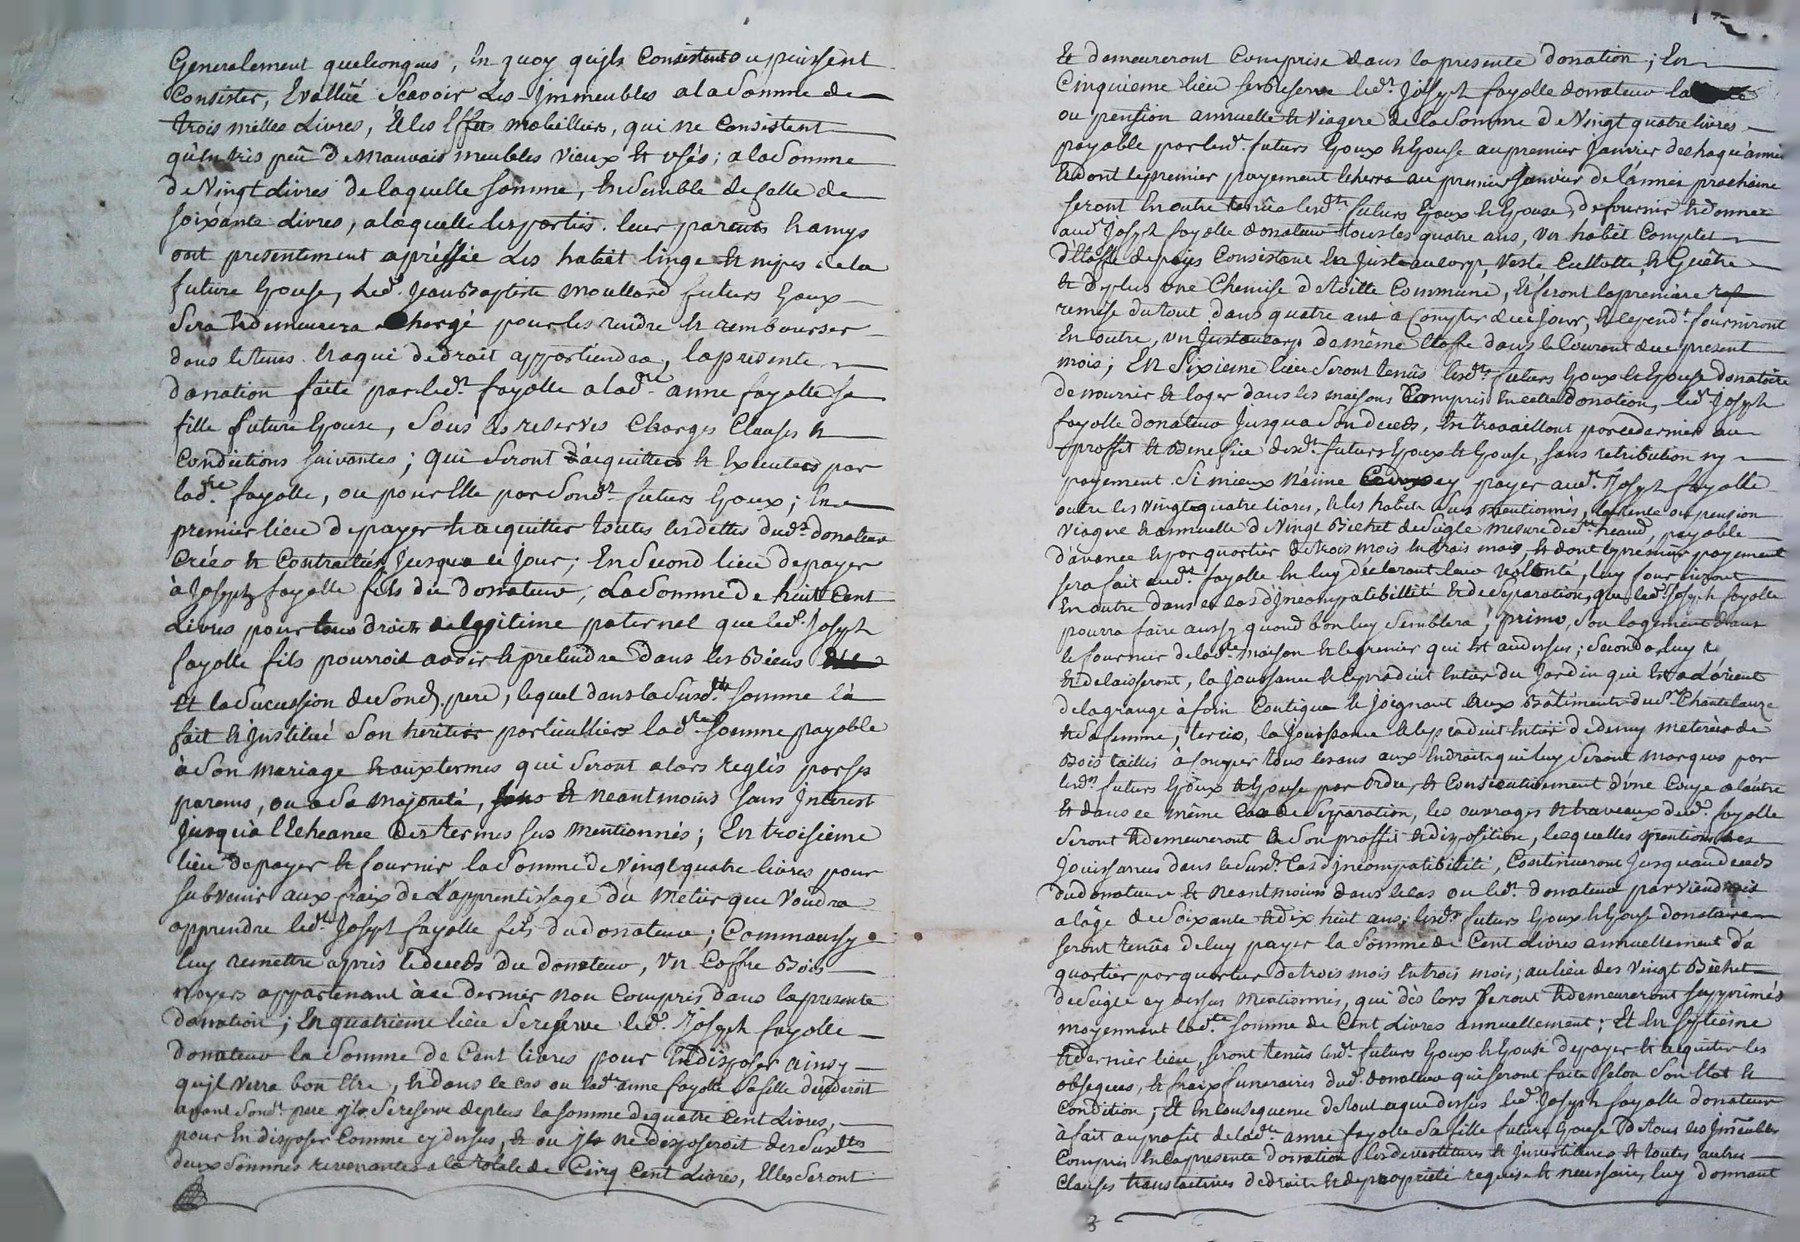 Generalement quelconques, En quoy qu'jls Consistent ou puissent
Consister, Evalluë Scavoir Les Jmmeubles a la Somme de
trois milles Livres, & les Effets mobilliers, qui ne Consistent
qu'En tres peu de mauvais meubles vieux & usés; a la Somme
de Vingt Livres de laquelle somme, Ensemble de celle de
soixante Livres, a laquelle les parties leur parents & amys
ont presentement apressiée Les habits linge & nipes de la
future Epouse, Led. Jean Baptiste moullard futurs Epoux
Sera & demeurera Chargé pour les rendre & rembourser
dans le tems & a qui de droit appartiendra, la presente
donation faite par led.t fayolle a lad.te anne fayolle sa
fille future Epouse, Sous les reserves Charges Clauses &
Conditions suivantes; qui Seront acquittées & Executées par
lad.te fayolle, ou pour Elle par Sond.t futurs Epoux; En
premier lieu de payer & acquitter toutes les dettes dud.t donateur
Créés & Contractées Jusqua ce Jour; En Second lieu de payer
à Joseph fayolle fils du donateur, La Somme de huit Cent
Livres pour tous droits de legitime paternel que led. Joseph
fayolle fils pourroit avoir & pretendre dans les Biens
Et la Sucession de Sond. pere, lequel dans la Susd.te somme l'a
fait & Jnstitué Son heritier particullier lad.te Somme payable
à Son mariage & aux termes qui Seront alors reglés par ses
parents, ou a Sa majorité, & neantmoins sans Jnterest
Jusqu'a l'Echeance des termes sus mentionnés; En troisieme
lieu de payer & fournir la Somme de Vingt quatre livres pour
subvenir aux fraix de L'apprentissage du Metier que Voudra
apprendre led.t Joseph fayolle fils du donateur; Comm aussy
luy remettre après le deceds du donateur, un Coffre Bois
noyers appartenant à ce dernier non Compris dans la presente
donation; En quatrieme lieu Se reserve led. Joseph fayolle
donateur la Somme de Cent livres pour En disposer ainsy
qu'jl verra bon Etre, & dans le cas ou lad.te anne fayolle Sa fille decederoit
avant Sond.t pere jl Se reserve de plus la somme de quatre Cent Livres,
pour En disposer Comme cy dessus, & ou jl ne disposeroit des Susd.tes
deux Sommes revenantes a la totale de Cinq Cent Livres, Elles Seront
Et demeureront Comprise dans la presente donation; En
Cinquieme lieu se reserve led.t Joseph fayolle donateur la
ou pension annuelle & viagere de la Somme de Vingt quatre livres
payable par lesd.t futurs Epoux & Epouse au premier Janvier de chaque année
& dont le premier payement Echerra au premier Janvier de l'année prochaine
seront En outre tenûs lesd.ts futurs Epoux & Epouse, de fournir & donner
aud.t Joseph fayolle donateur tous les quatre ans, un habit Complet
d'Etoffe de pays Consistant En Justaucorp, Veste Cullotte, & Guêtre
& de plus une Chemise de toille Commune, & feront la premiere
remise du tout dans quatre ans à Compter de ce Jour, & Cepend.t fourniront
En outre, un Justaucorp de même Etoffe dans le Courant du present
mois; En Sixieme lieu Seront tenûs lesd.ts futurs Epoux & Epouse donatoire
de nourrir & loger dans les maisons Compris En cette donation, led. Joseph
fayolle donateur Jusqua Son deceds, En travaillant par ce dernier au
proffit & Benefice desd.ts futurs Epoux & Epouse, sans retribution ny
payement Si mieux payer aud.t Joseph fayolle
outre les vingt quatre livres, & les habits sus mentionnés, la rente ou pension
viagere & annuelle de Vingt Bichet de seigle mesure de payable
d'avance & par quartier de trois mois En trois mois, & dont le premier payement
sera fait aud.t fayolle En luy declarant leur volonté, luy fourniront
En outre dans ce cas d'Jncompatibillité & de separation, que led. Joseph fayolle
pourra faire aussy quand bon luy Semblera; primo, Son logement dans
le fournier de lad.te maison & le grenier qui Est au dessus; Secondo, luy
& delaisseront, la Jouissance & le produit Entier du Jardin qui Est a L'orient
de la grange à foin Contigue & Joignant aux Bâtiments du S.r Chantelauze
& Sa femme; tercio, la Jouissance & le produit Entier de demy meterée de
Bois taillis à Couper tous les ans aux Endroits qui luy Seront marqués par
lesd.ts futurs Epoux & Epouse par ordre & Consecutivement d'une Coupe a l'autre
& dans ce même Cas de Separation, les ouvrages & travaux dud.t fayolle
Seront & demeureront à Son proffit & disposition, lesquelles pentions &
Jouissances dans le Susd.t Cas d'jncompatibilité, Continueront Jusqu'au deceds
du donateur & Neantmoins dans le cas ou led.t donateur parviendroit
a l'âge de Soixante & dix huit ans; lesd.ts futurs Epoux & Epouse donataire
seront tenûs de luy payer la Somme de Cent Livres annuellement de
quartier par quartier de trois mois En trois mois; au lieu des vingt Bichet
de Seigle cy dessus mentionnés, qui dès lors Seront & demeureront supprimés
moyennant lad.te somme de Cent Livres annuellement; Et En Septieme
& dernier lieu, seront tenûs lesd.ts futurs Epoux & Epouse de payer & acquitter les
obseques, & fraix funeraires dud.t donateur qui seront faits selon Son Etat &
Condition; Et En Consequence de tout ce que dessus led.t Joseph fayolle donateur
à fait au profit de lad.te anne fayolle Sa fille future Epouse de tous les Jmeubles
Compris En la presente donation les devestitures & Jnvestitures & toutes autres
Clauses translatives de droits & de proprieté requise & necessaire, luy donnant
3